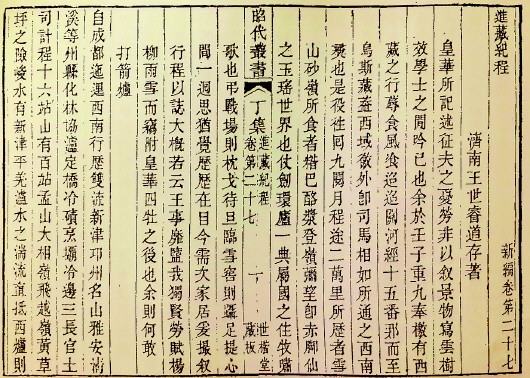 進藏紀程　新編卷第二十七
濟南王世睿道存著
皇華所記述征夫之憂勞非以叙景物寫雲樹
效學士之閒吟已也余於壬子重九奉檄有西
藏之行尊食風飡迤邐河經十五番那而至
烏斯藏蓋西域徼外即司馬相如所通之西南
夷也是役往囘九閱月程途二萬里所歷者雪
山砂嶺所食者糌巴酪漿登嶺彌望即赤脚仙
之玉瑤世界也仗劒環廬一典屬國之住牧嘯
昭代叢書　丁集　進藏紀程　卷第二十七　一　世楷堂　藏板
歌也弔戰場則枕戈待旦臨雪窖則躡足提心
間一迴思猶覺歷歷在目今需次家居爰撮叙
行程以誌大概若云王事靡盬我獨賢勞賦楊
柳雨雪而竊附皇華四牡之後也余則何敢
打箭爐
自成都迤邐西南行歷雙流新津邛州名山雅安淸
溪等州縣化林協瀘定橋冷磧烹壩冷邊三長官土
司計程十六站山有百站孟山大相嶺飛越嶺黃草
坪之險後水有新津平羌瀘水之湍流直抵西爐則